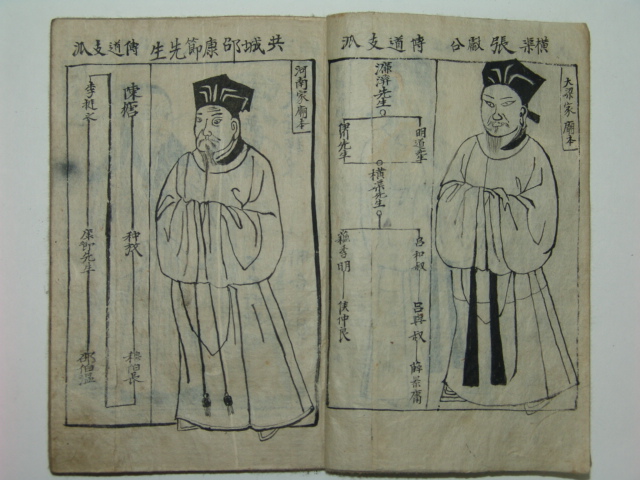 橫渠張獻公 傳道支泒
大梁家廟本
濂溪先生
明道先生
橫渠先生
呂和叔 呂與叔 薛景庸
蘇季明 侯仲良
共城邵康節先生 傳道支泒
河南家廟本
陳摶 种放 穆伯長
李挺之 康節先生 邵伯溫